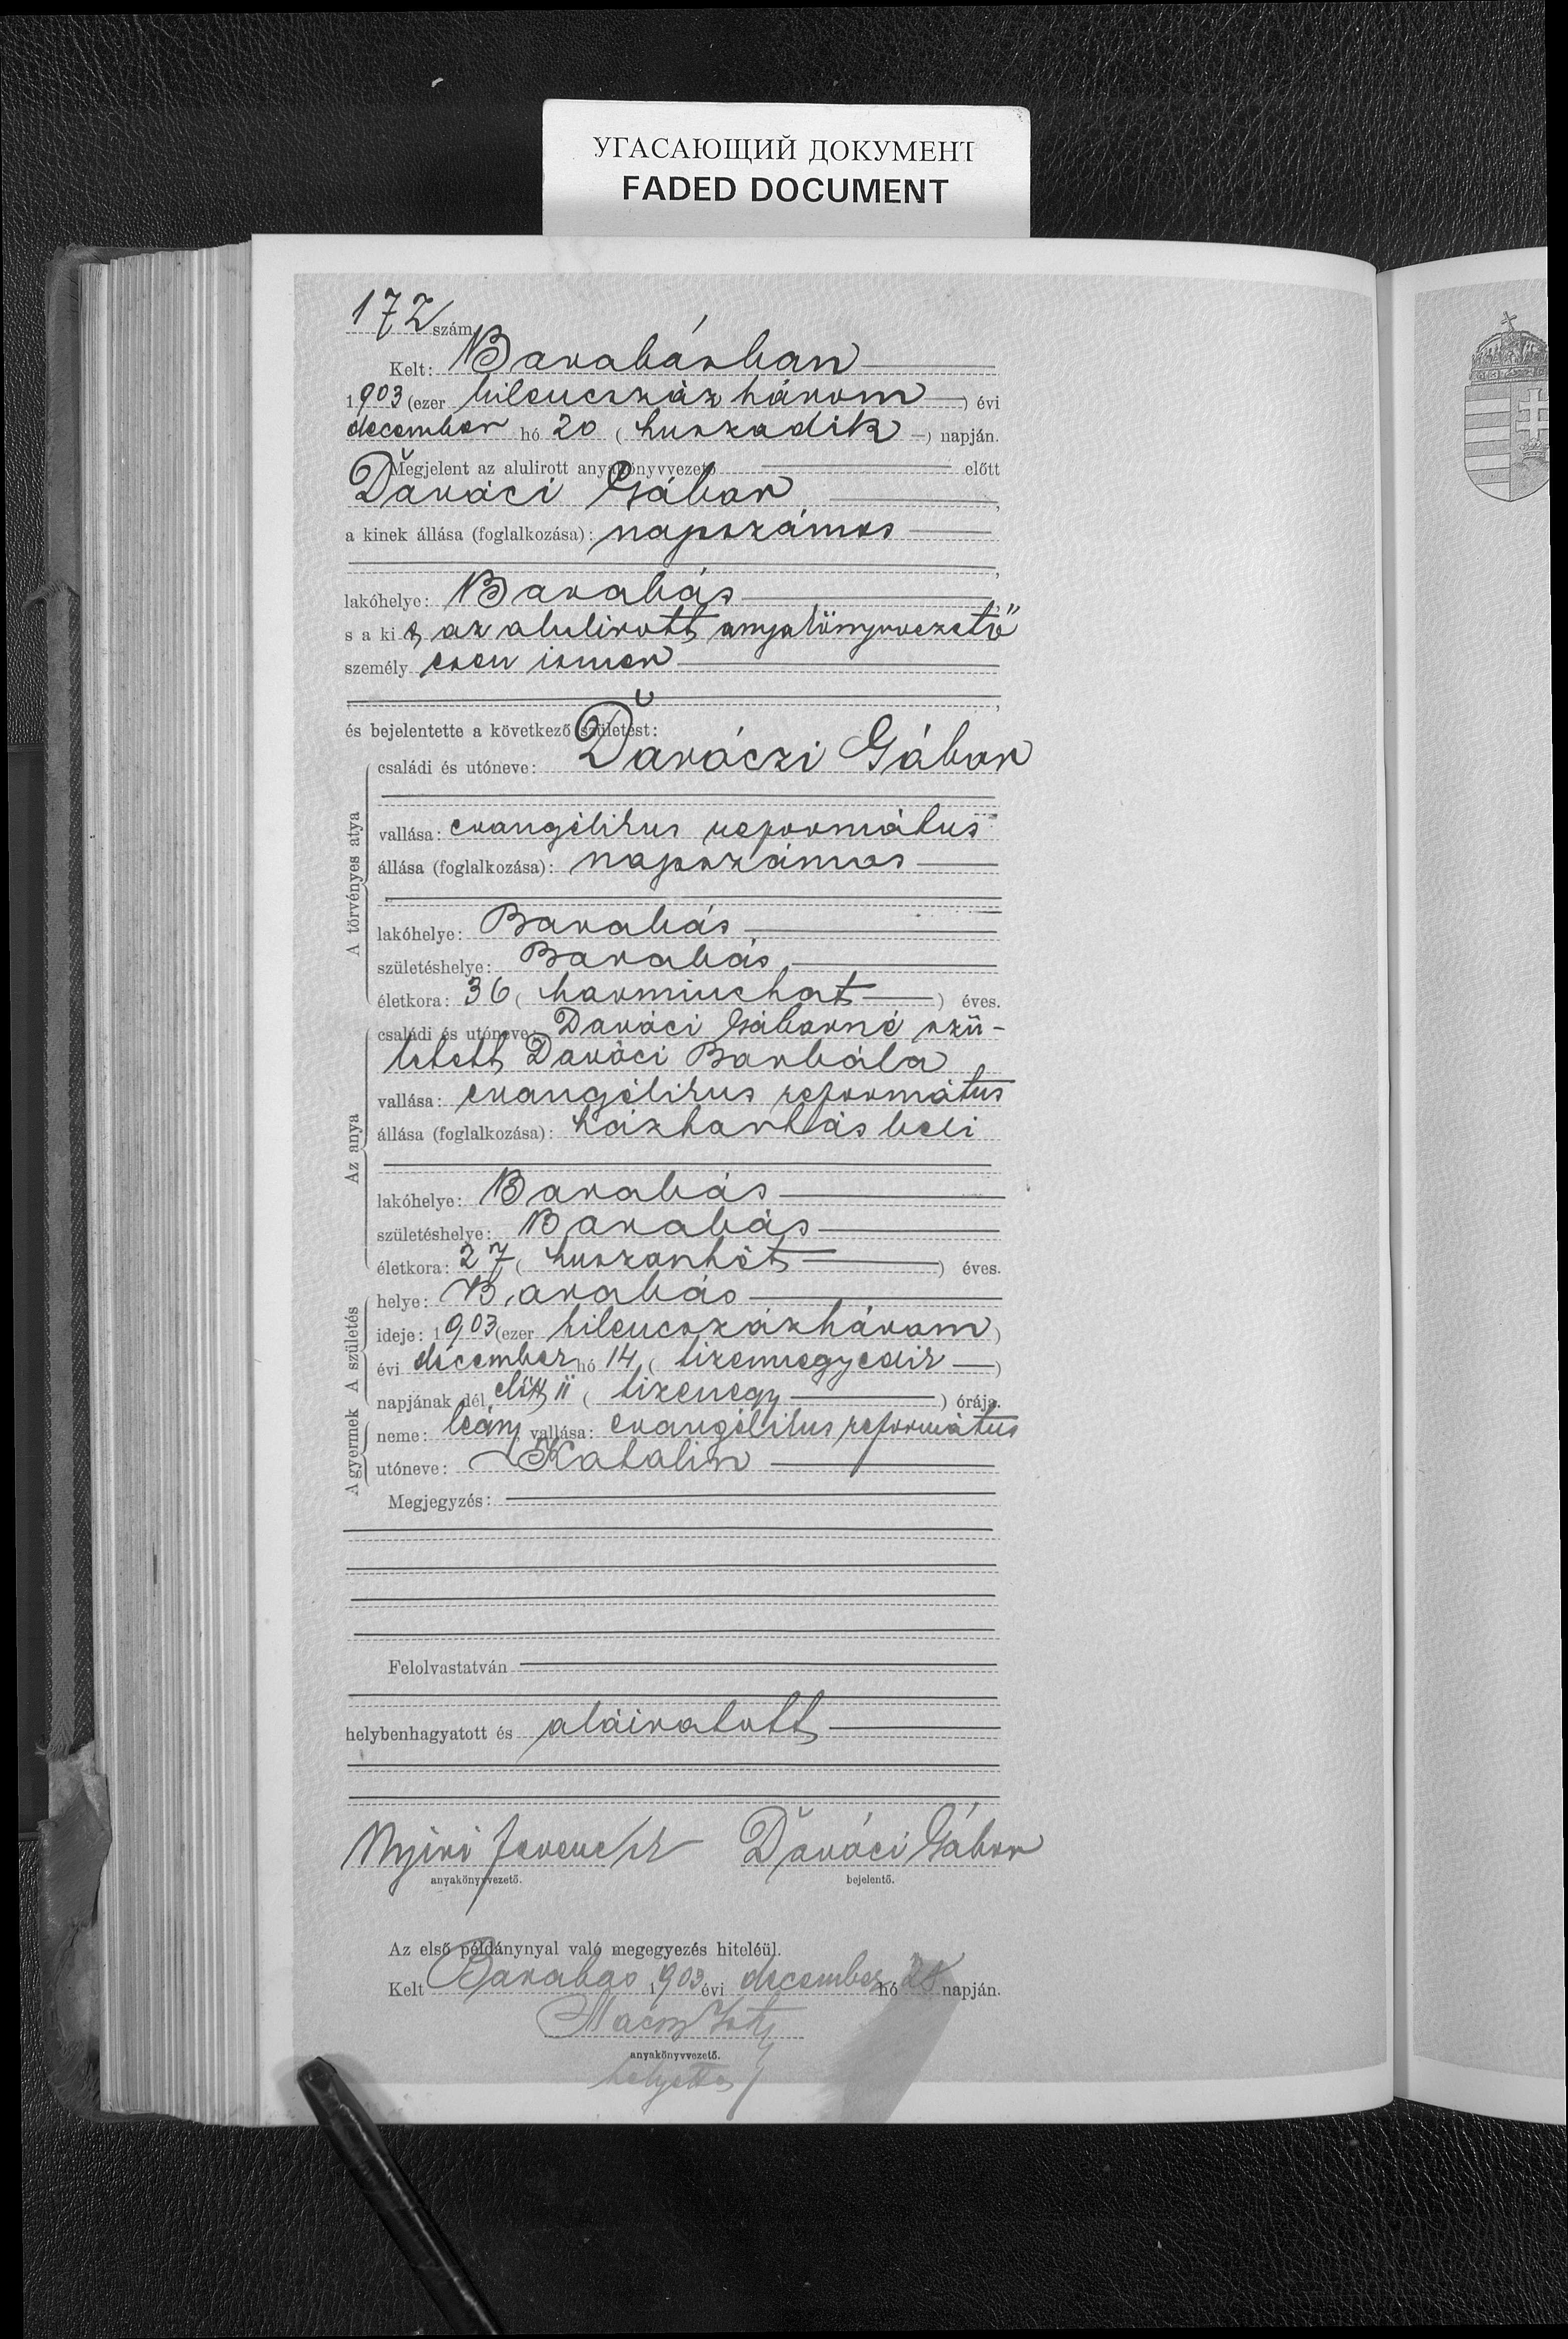 УГАСАЮЩИЙ ДОКУМЕНТ
FADED DOCUMENT
172 szám
Kelt: Barabásban
1903 (ezer kilencszáz három) évi
december hó 20 (huszadik) napján.
Megjelent az alulirott anyakönyvvezető előtt
Daráci Gábor,
a kinek állása (foglalkozása): napszámos
lakóhelye: Barabás
s a kit az alulirott anyakönyvvezető
személyesen ismer
és bejelentette a következő születést:
A törvényes atya
családi és utóneve: Daróczi Gábor
vallása: evangélikus református
állása (foglalkozása): napszámos
lakóhelye: Barabás
születéshelye: Barabás
életkora: 36 (harminchat) éves.
Az anya
családi és utóneve: Daráci Gáborné szü-
letett Daráci Borbála
vallása: evangélikus református
állása (foglalkozása): háztartásbeli
lakóhelye: Barabás
születéshelye: Barabás
életkora: 27 (huszonhét) éves.
A születés
helye: Barabás
ideje: 1903 (ezer kilencszázhárom)
évi december hó 14 (tizennegyedik)
napjának dél előtt 11 (tizenegy) órája.
A gyermek
neme: leány vallása: evangélikus református
utóneve: Katalin
Megjegyzés:
Felolvastatván
helybenhagyatott és aláiratott
Nyiri Ferencz Daráci Gábor
anyakönyvvezető. bejelentő.
Az első példánynyal való megegyezés hiteléül.
Kelt Barabás 1903 évi december hó 28 napján.
anyakönyvvezető.
helyettes